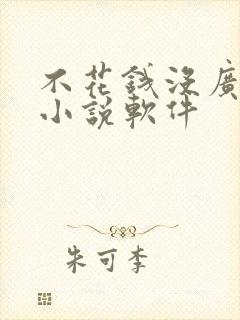 不花錢沒廣
小說軟件
朱可李